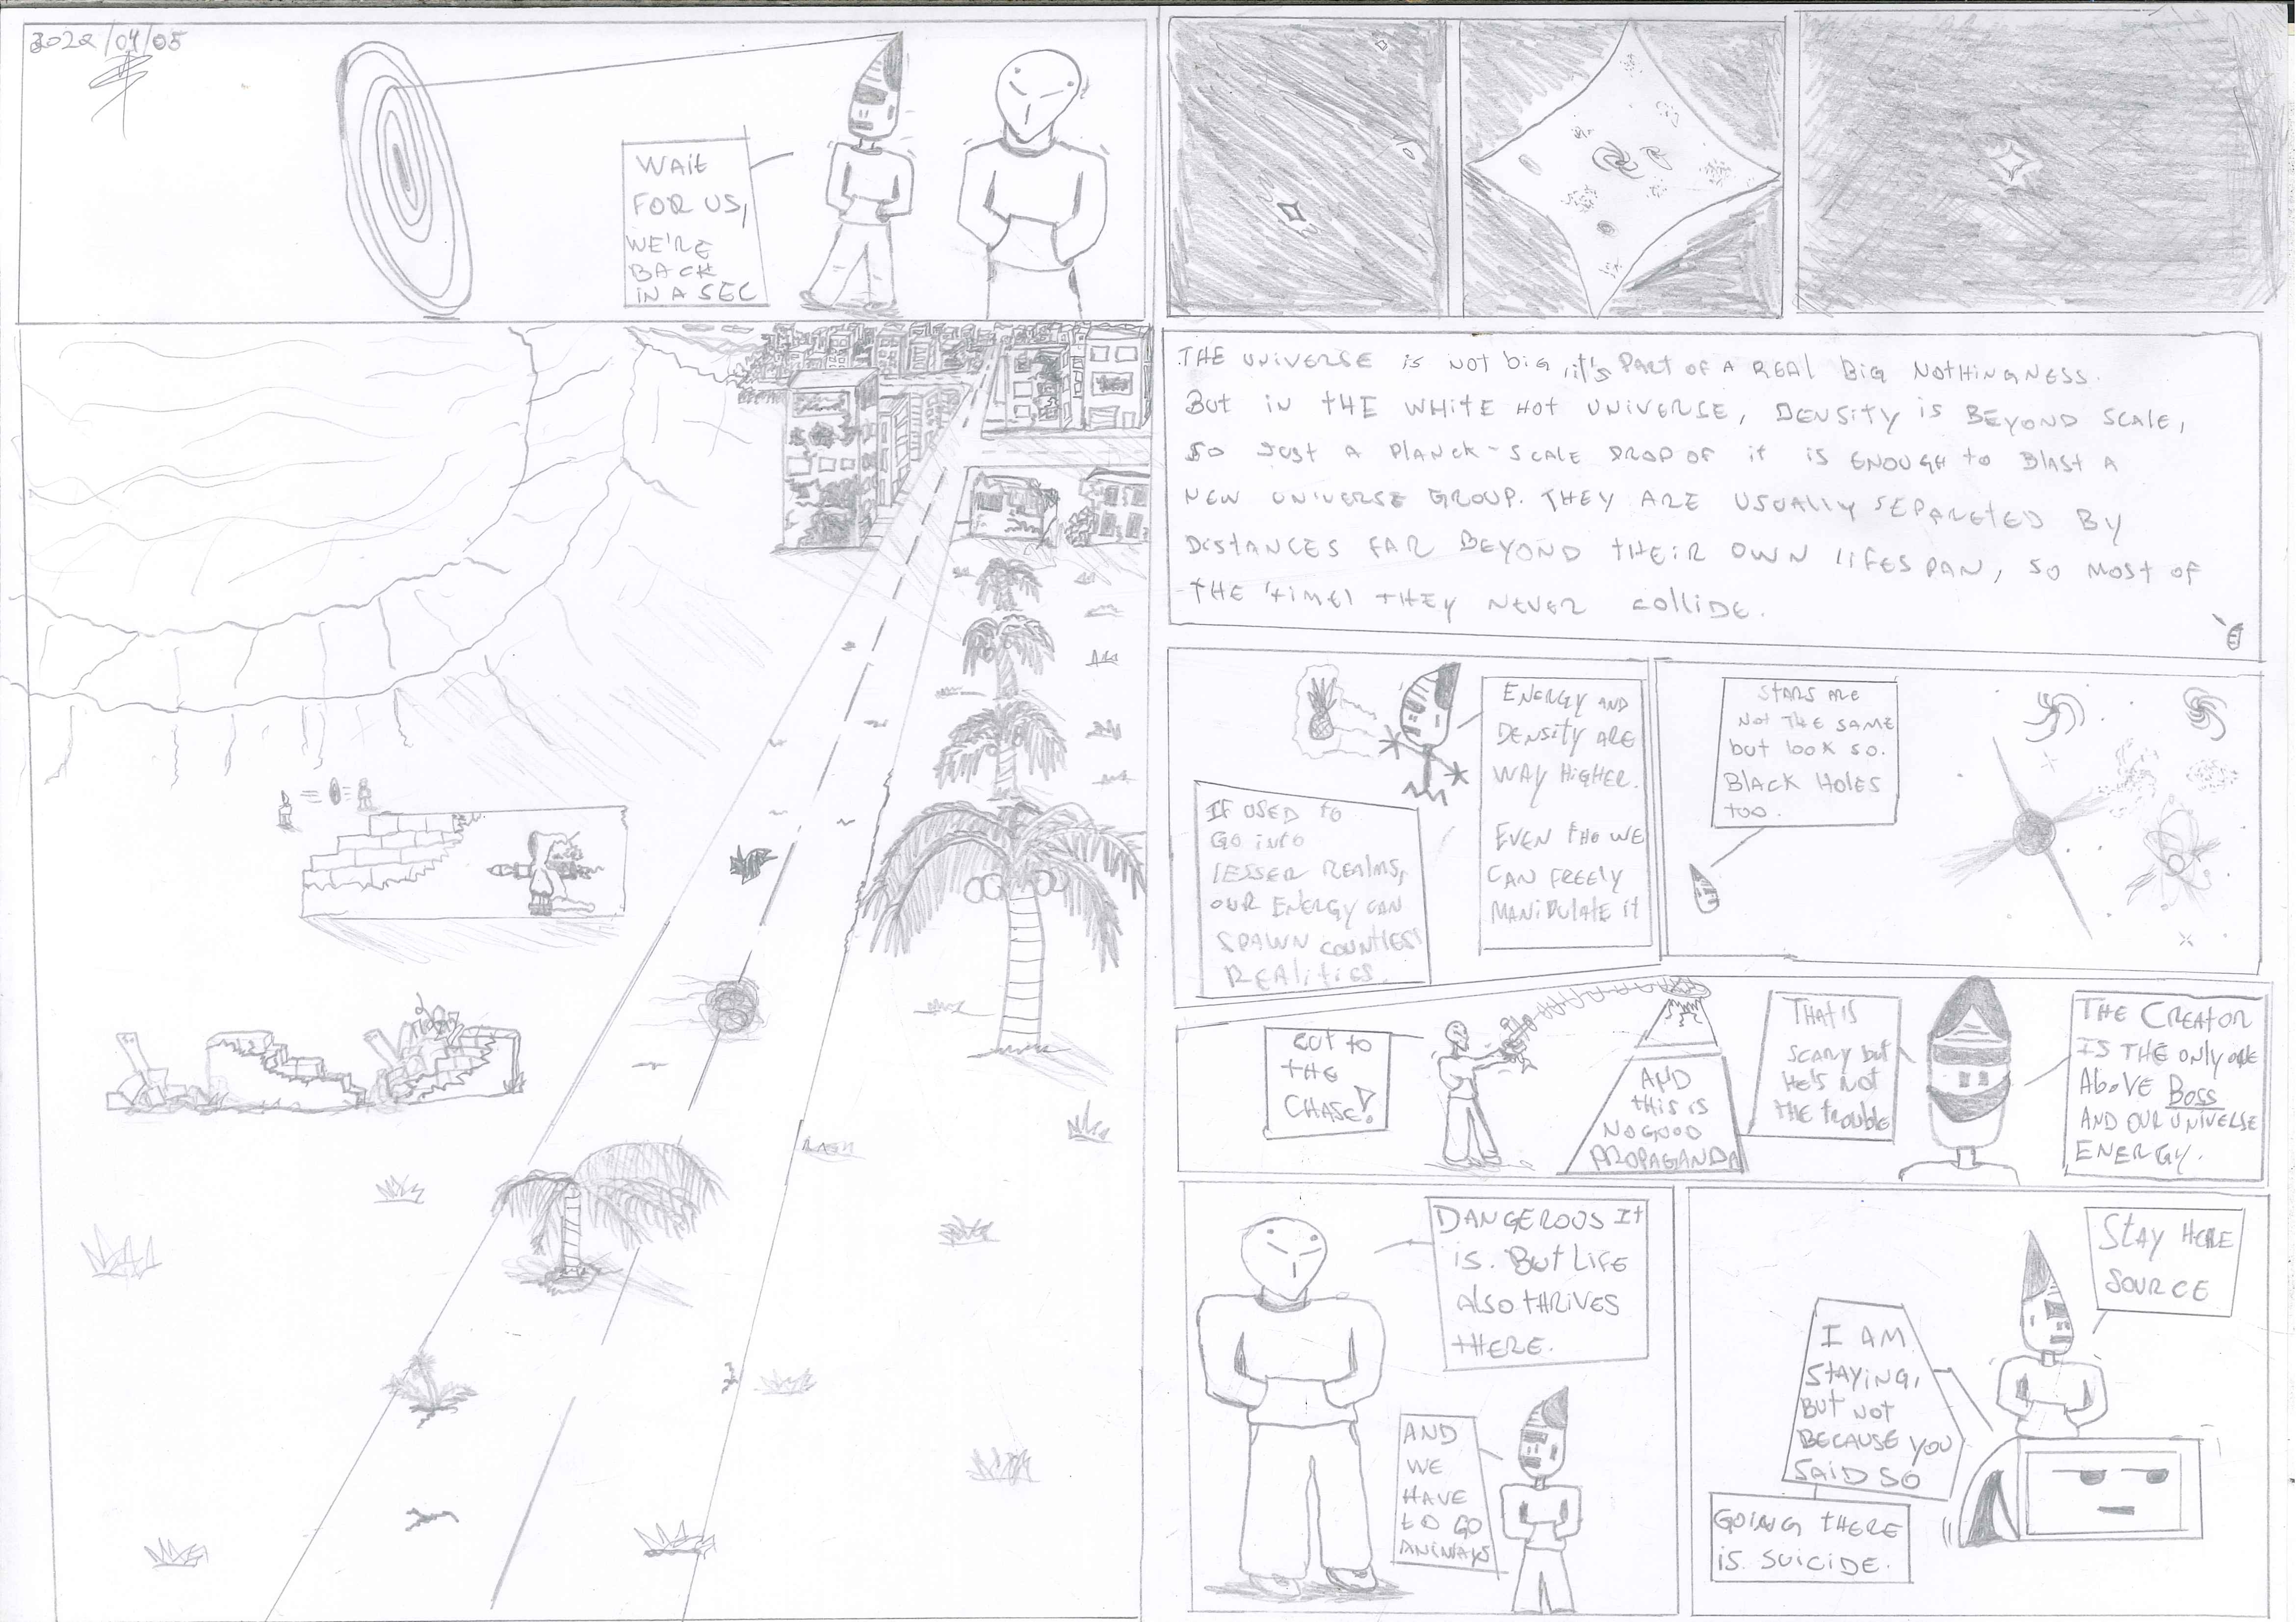 2022/04/05
WAIT
FOR US,
WE'RE
BACK
IN A SEC
THE UNIVERSE IS NOT BIG, IT'S PART OF A REAL BIG NOTHINGNESS.
BUT IN THE WHITE HOT UNIVERSE, DENSITY IS BEYOND SCALE,
SO JUST A PLANCK-SCALE DROP OF IT IS ENOUGH TO BLAST A
NEW UNIVERSE GROUP. THEY ARE USUALLY SEPARETED BY
DISTANCES FAR BEYOND THEIR OWN LIFESPAN, SO MOST OF
THE TIME, THEY NEVER COLLIDE.
ENERGY AND
DENSITY ARE
WAY HIGHER.
EVEN THO WE
CAN FREELY
MANIPULATE IT
IF USED TO
GO INTO
LESSER REALMS,
OUR ENERGY CAN
SPAWN COUNTLESS
REALITIES.
STARS ARE
NOT THE SAME
BUT LOOK SO.
BLACK HOLES
TOO.
CUT TO
THE
CHASE!
AND
THIS IS
NO GOOD
PROPAGANDA
THAT IS
SCARY BUT
HE'S NOT
THE TROUBLE
THE CREATOR
IS THE ONLY ONE
ABOVE BOSS
AND OUR UNIVERSE
ENERGY.
DANGEROUS IT
IS. BUT LIFE
ALSO THRIVES
THERE.
AND
WE
HAVE
TO GO
ANIWAYS
STAY HERE
SOURCE
I AM
STAYING,
BUT NOT
BECAUSE YOU
SAID SO
GOING THERE
IS SUICIDE.